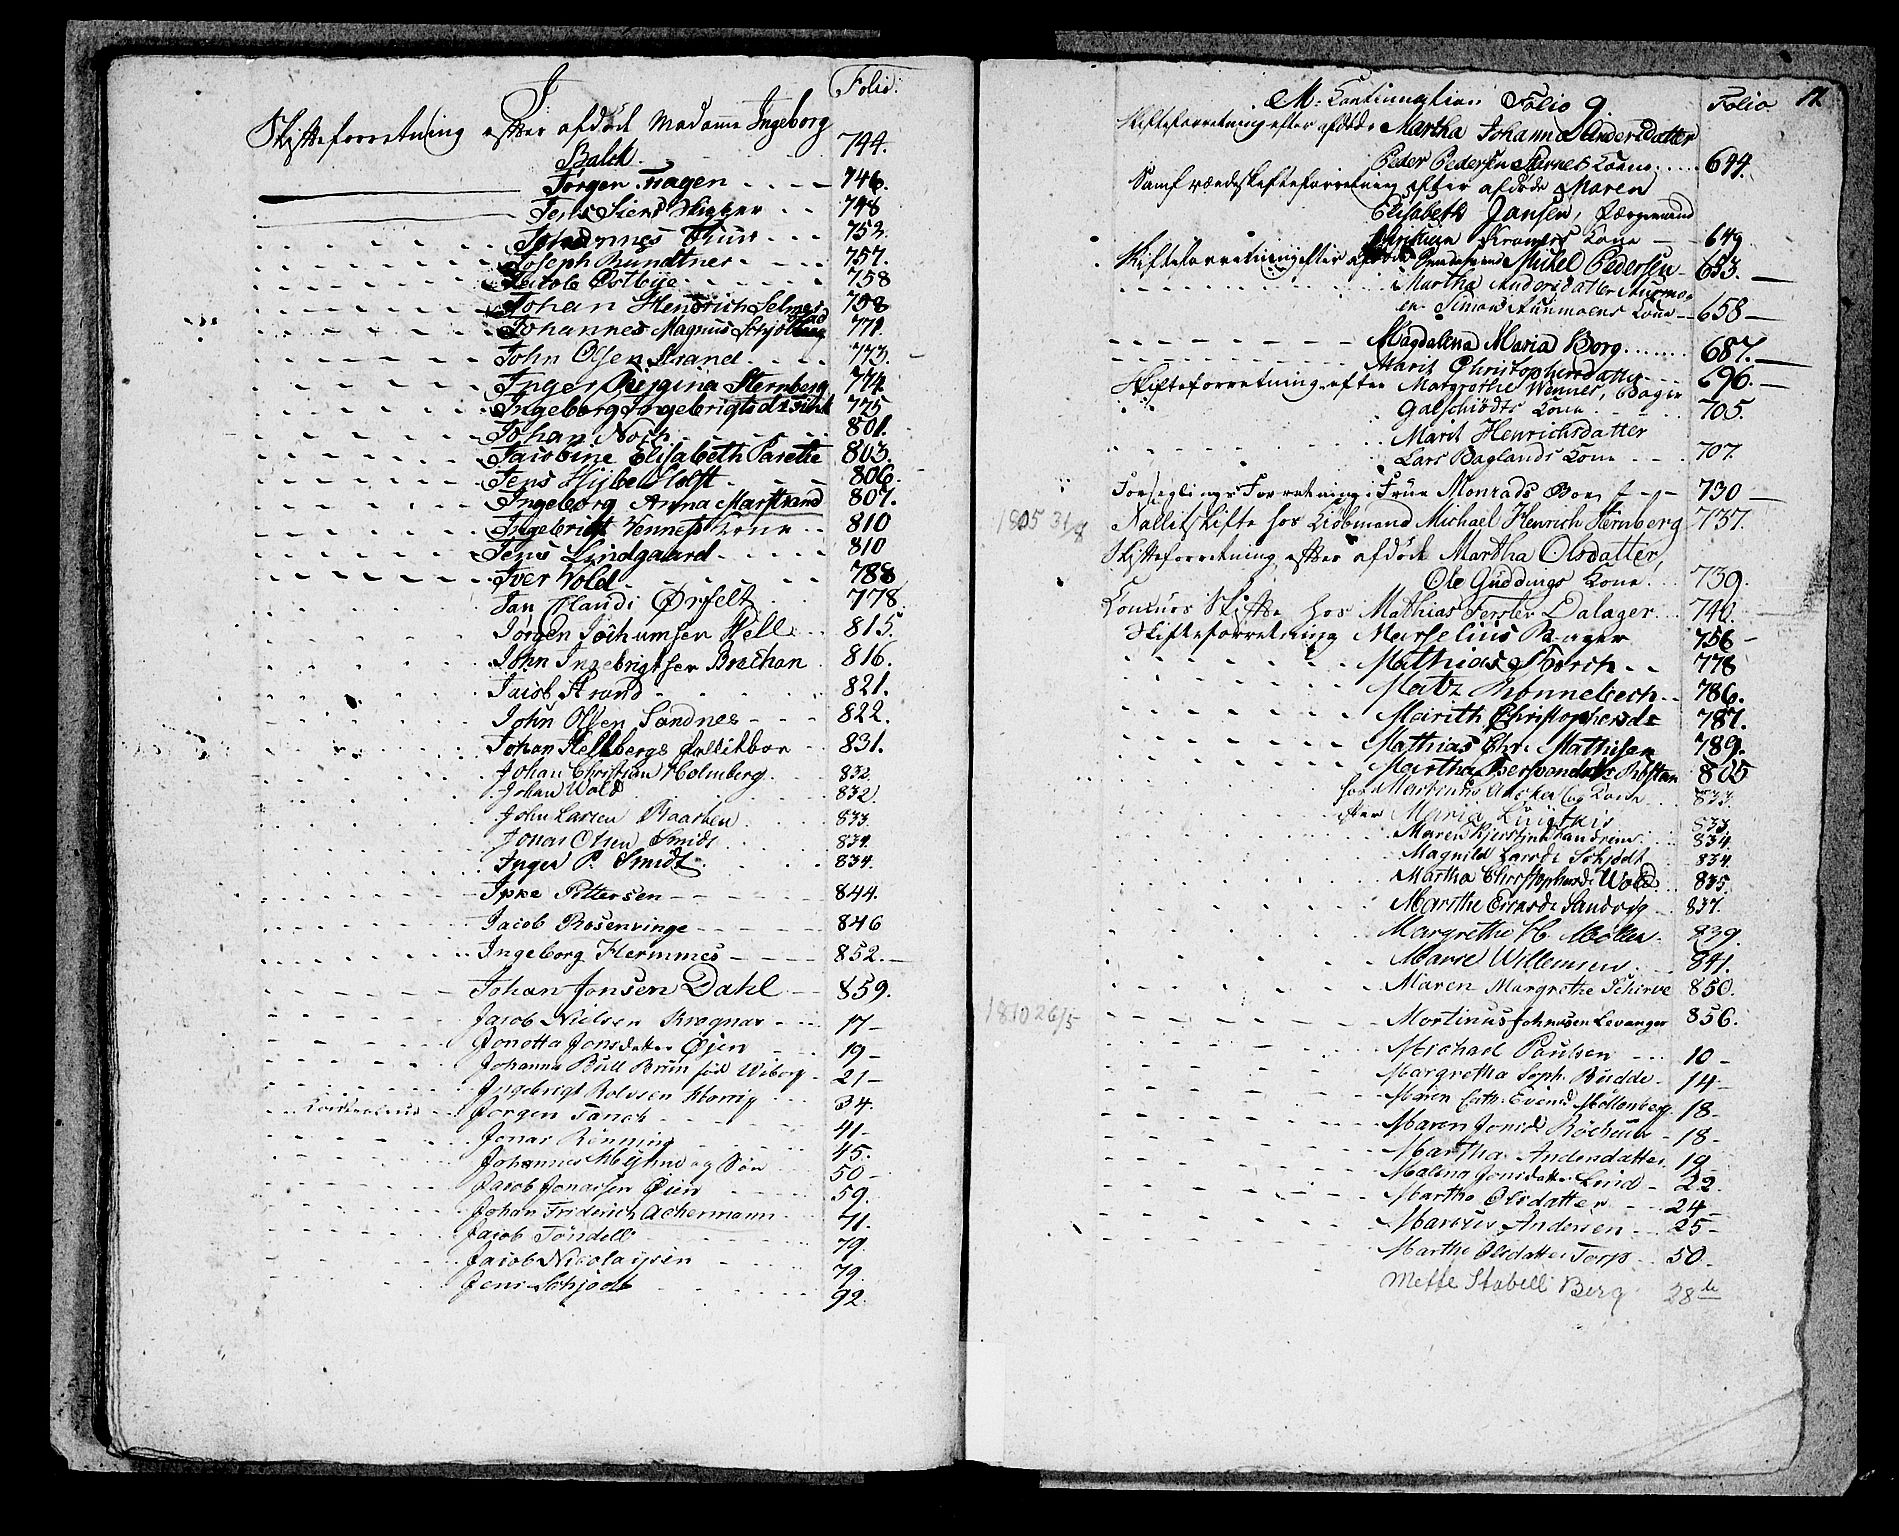 J. Folio:
Skifteforretning efter afdöde Madame Ingeborg
Balck 744.
Jörgen Hagen 746.
Jens Siers 748
Johannes 753.
Joseph Bundtner 757.
Jacob Østbye 758
Johan Hendrich Selmer 758
Johannes Magnus 771.
John Olsen Strand 773.
Inger Regina Sternberg 774.
Ingeborg Ingebrigtsd 775
Johan Nosh 801.
Jacobine Elisabeth Parelie 803.
Jens Holst 806.
Ingeborg Anna Marstrand 807.
Ingebrigt Vennes Kone 810
Jens Lindgaard 810
Iver Vold 788
Jan Ørfelt 778
Jörgen Jochumsen Stell 815.
John Ingebrigtsen Brechan 816.
Jacob Strand 821.
John Olsen Sandnes 822.
Johan Hellbergs Fallitboe 831.
Johan Christian Holmberg 832.
Johan Wold 832.
John Larsen Raaaen 833.
Jonas Olsen Smidt 834.
Inger P. Smidt 834.
Ipke Pettersen 844.
Jacob Rosenvinge 846
Ingeborg Hemmes 852.
Johan Jonsen Dahl 859.
Jacob Nielsen Kragnas 17
Jonetta Jonsdatter Øien 19
Johanna Bull Brun föd Wiborg 21
Ingebrigt Rolvsen 34.
Jörgen Fanck 41
Jonas Rönning 45.
Johannes og Sön 50
Jacob Jonassen Øien 59.
Johan Friderich Achermann 71.
Jacob Töndell 79.
Jacob Nicolaysen 79.
Jens Schjodt 92.
M. Continuation Folio 9. Folio 11
Skifteforretning efter afdöde Martha Johanna Andersdatter
Peder Pedersen Kone 644.
Samfrændeskifteforretning efter afdöde Maren
Elisabeth Jansen, Færgemand
Kramers Kone 649
Skifteforretning efter afdöde Mikel Pedersen 653.
Martha Andersdatter
Simon Aunmoens Kone 658
Magdalena Maria Borg 687.
Marit Christophersdatter 696.
Skifteforretning efter Margrethe Wennes, Bager
Galschiödts Kone 705.
Marit Henrichsdatter
Lars Baglands Kone 707.
Forseglings Forretning i Frue Monrads Boe 730
1805 31/8 Fallitskifte hos Kiöbmand Michael Henrich Sternberg 737.
Skifteforretning efter afdöde Martha Olsdatter,
Ole Guddings Kone 739.
Concurs Skifte hos Mathias Ferslev Dalager 740.
Skifteforretning Marselius Bager 756
Mathias Storch 778
Matz Rönnebech 786.
Marith Christophersdr 787.
Mathias Chr. Mathisen 789.
Martha 805
hos Martinus Ancker og Kone 833.
efter Maria 833
Maren Kjerstine 834.
Magnild Larsdr Schjödt 834.
Martha Christophersdr Wold 835.
Marithe Ericsdr Sandvig 837.
Margrethe H. Möller 839.
Marie Willemsen 841.
Maren Margrethe Schirve 850.
1810 26/5 Mortinus Johnsen Levanger 856.
Michael Paulsen 10
Margretha Soph. Budde 14
Maren Cath. Evensd Mollenberg 18
Maren Jonsdr 18
Martha Andersdatter 19
Malena Jonsdatter Lind 22.
Marthe Olsdatter 24
Marcus Andersen 25
Marthe Olsdatter Torp 50
Mette Stabell Berg 28 de